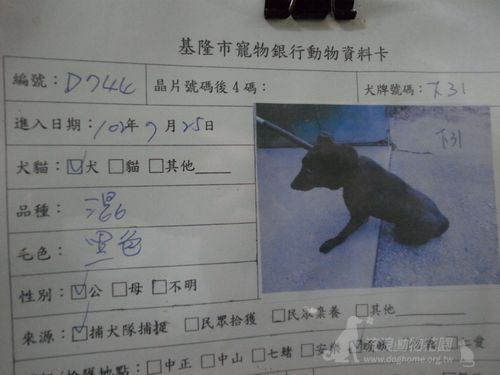 基隆市寵物銀行動物資料卡
編號： D744 晶片號碼後4碼： 犬牌號碼： 下31
進入日期： 102年9月25日
犬貓： ☑犬 □貓 □其他____
下31
品種： 混
毛色： 黑色
性別： ☑公 □母 □不明
來源： ☑捕犬隊捕捉 □民眾拾獲 □民眾棄養 □其他
地點： □中正 □中山 □七堵 □安樂
www.doghome.org.tw